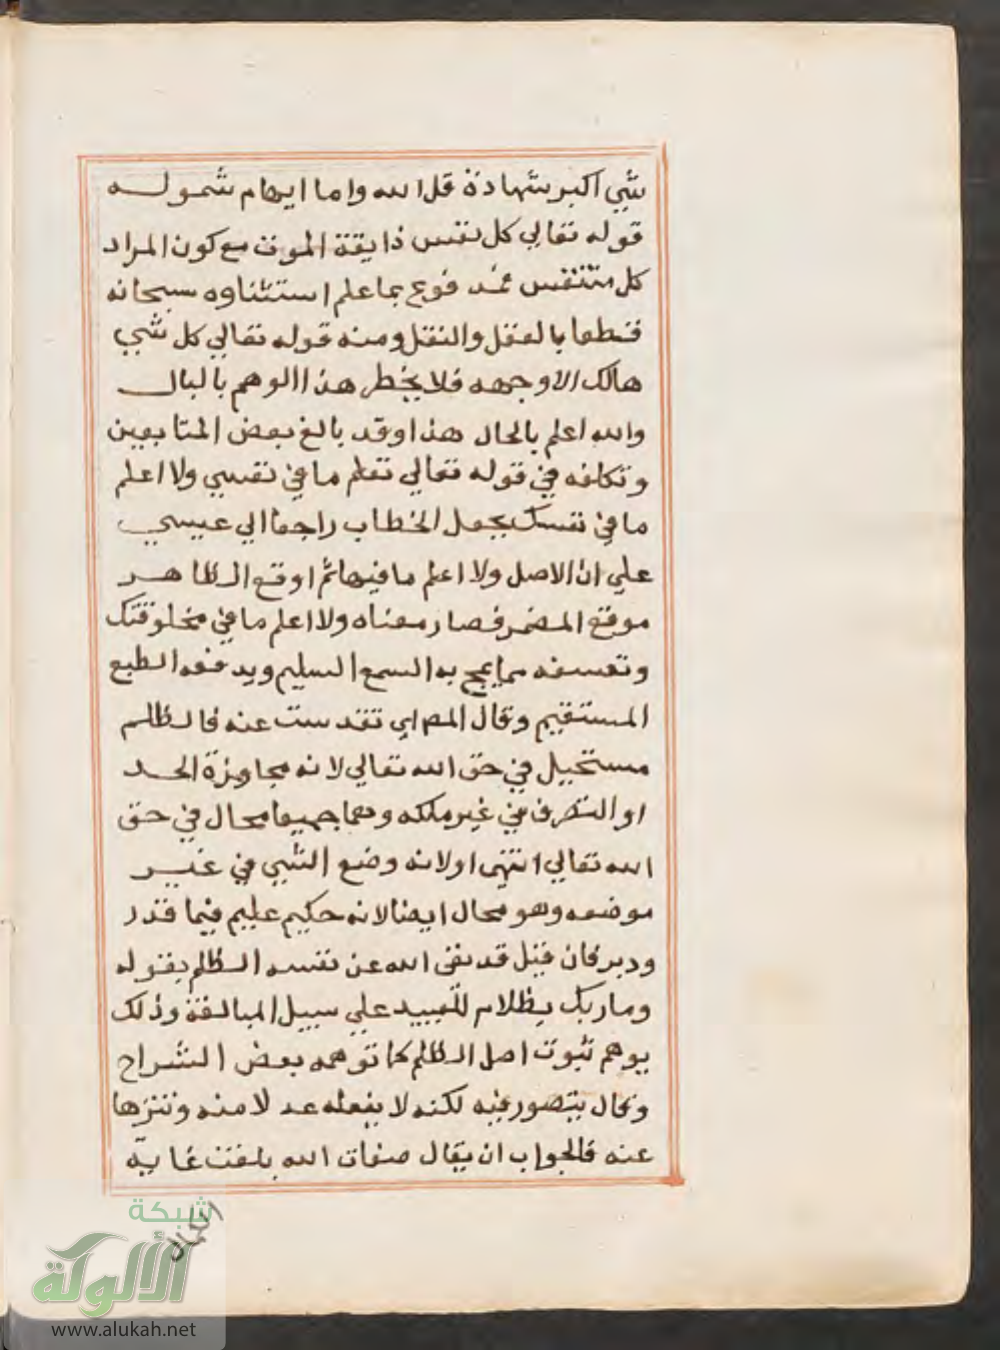 شي اكبر شهادة قل الله واما ايهام شموله
قوله تعالي كل نفس ذايقة الموت مع كون المراد
كل متنفس فمدفوع بما علم استثناوه سبحانه
قطعا بالعقل والنقل ومنه قوله تعالي كل شي
هالك الا وجهه فلا يخطر هذا الوهم بالبال
والله اعلم بالحال هذا وقد بالغ بعض المتابعين
وتكلفه في قوله تعالي تعلم ما في نفسي ولا اعلم
ما في نفسك بجعل الخطاب راجعا الي عيسي
علي ان الاصل ولا اعلم ما فيها ثم اوقع الظاهر
موقع المضمر فصار معناه ولا اعلم ما في مخلوقتك
وتعسفه مما يمج به السمع السليم ويدفعه الطبع
المستقيم وقال المص اي تقدست عنه فالظلم
مستحيل في حق الله تعالي لانه مجاوزة الحد
او التصرف في غير ملكه وهما جميعا محال في حق
الله تعالي انتهي او لانه وضع الشي في غير
موضعه وهو محال ايضا لانه حكيم عليم فيما قدر
ودبر فان قيل قد نفي الله عن نفسه الظلم بقوله
وما ربك بظلام للعبيد علي سبيل المبالغة وذلك
يوهم ثبوت اصل الظلم كما توهمه بعض الشراح
وقال يتصور فيه لكنه لا يفعله عدلا منه وتنزها
عنه فالجواب ان يقال صفات الله بلغت غاية
الكمال
شبكة
الألوكة
www.alukah.net